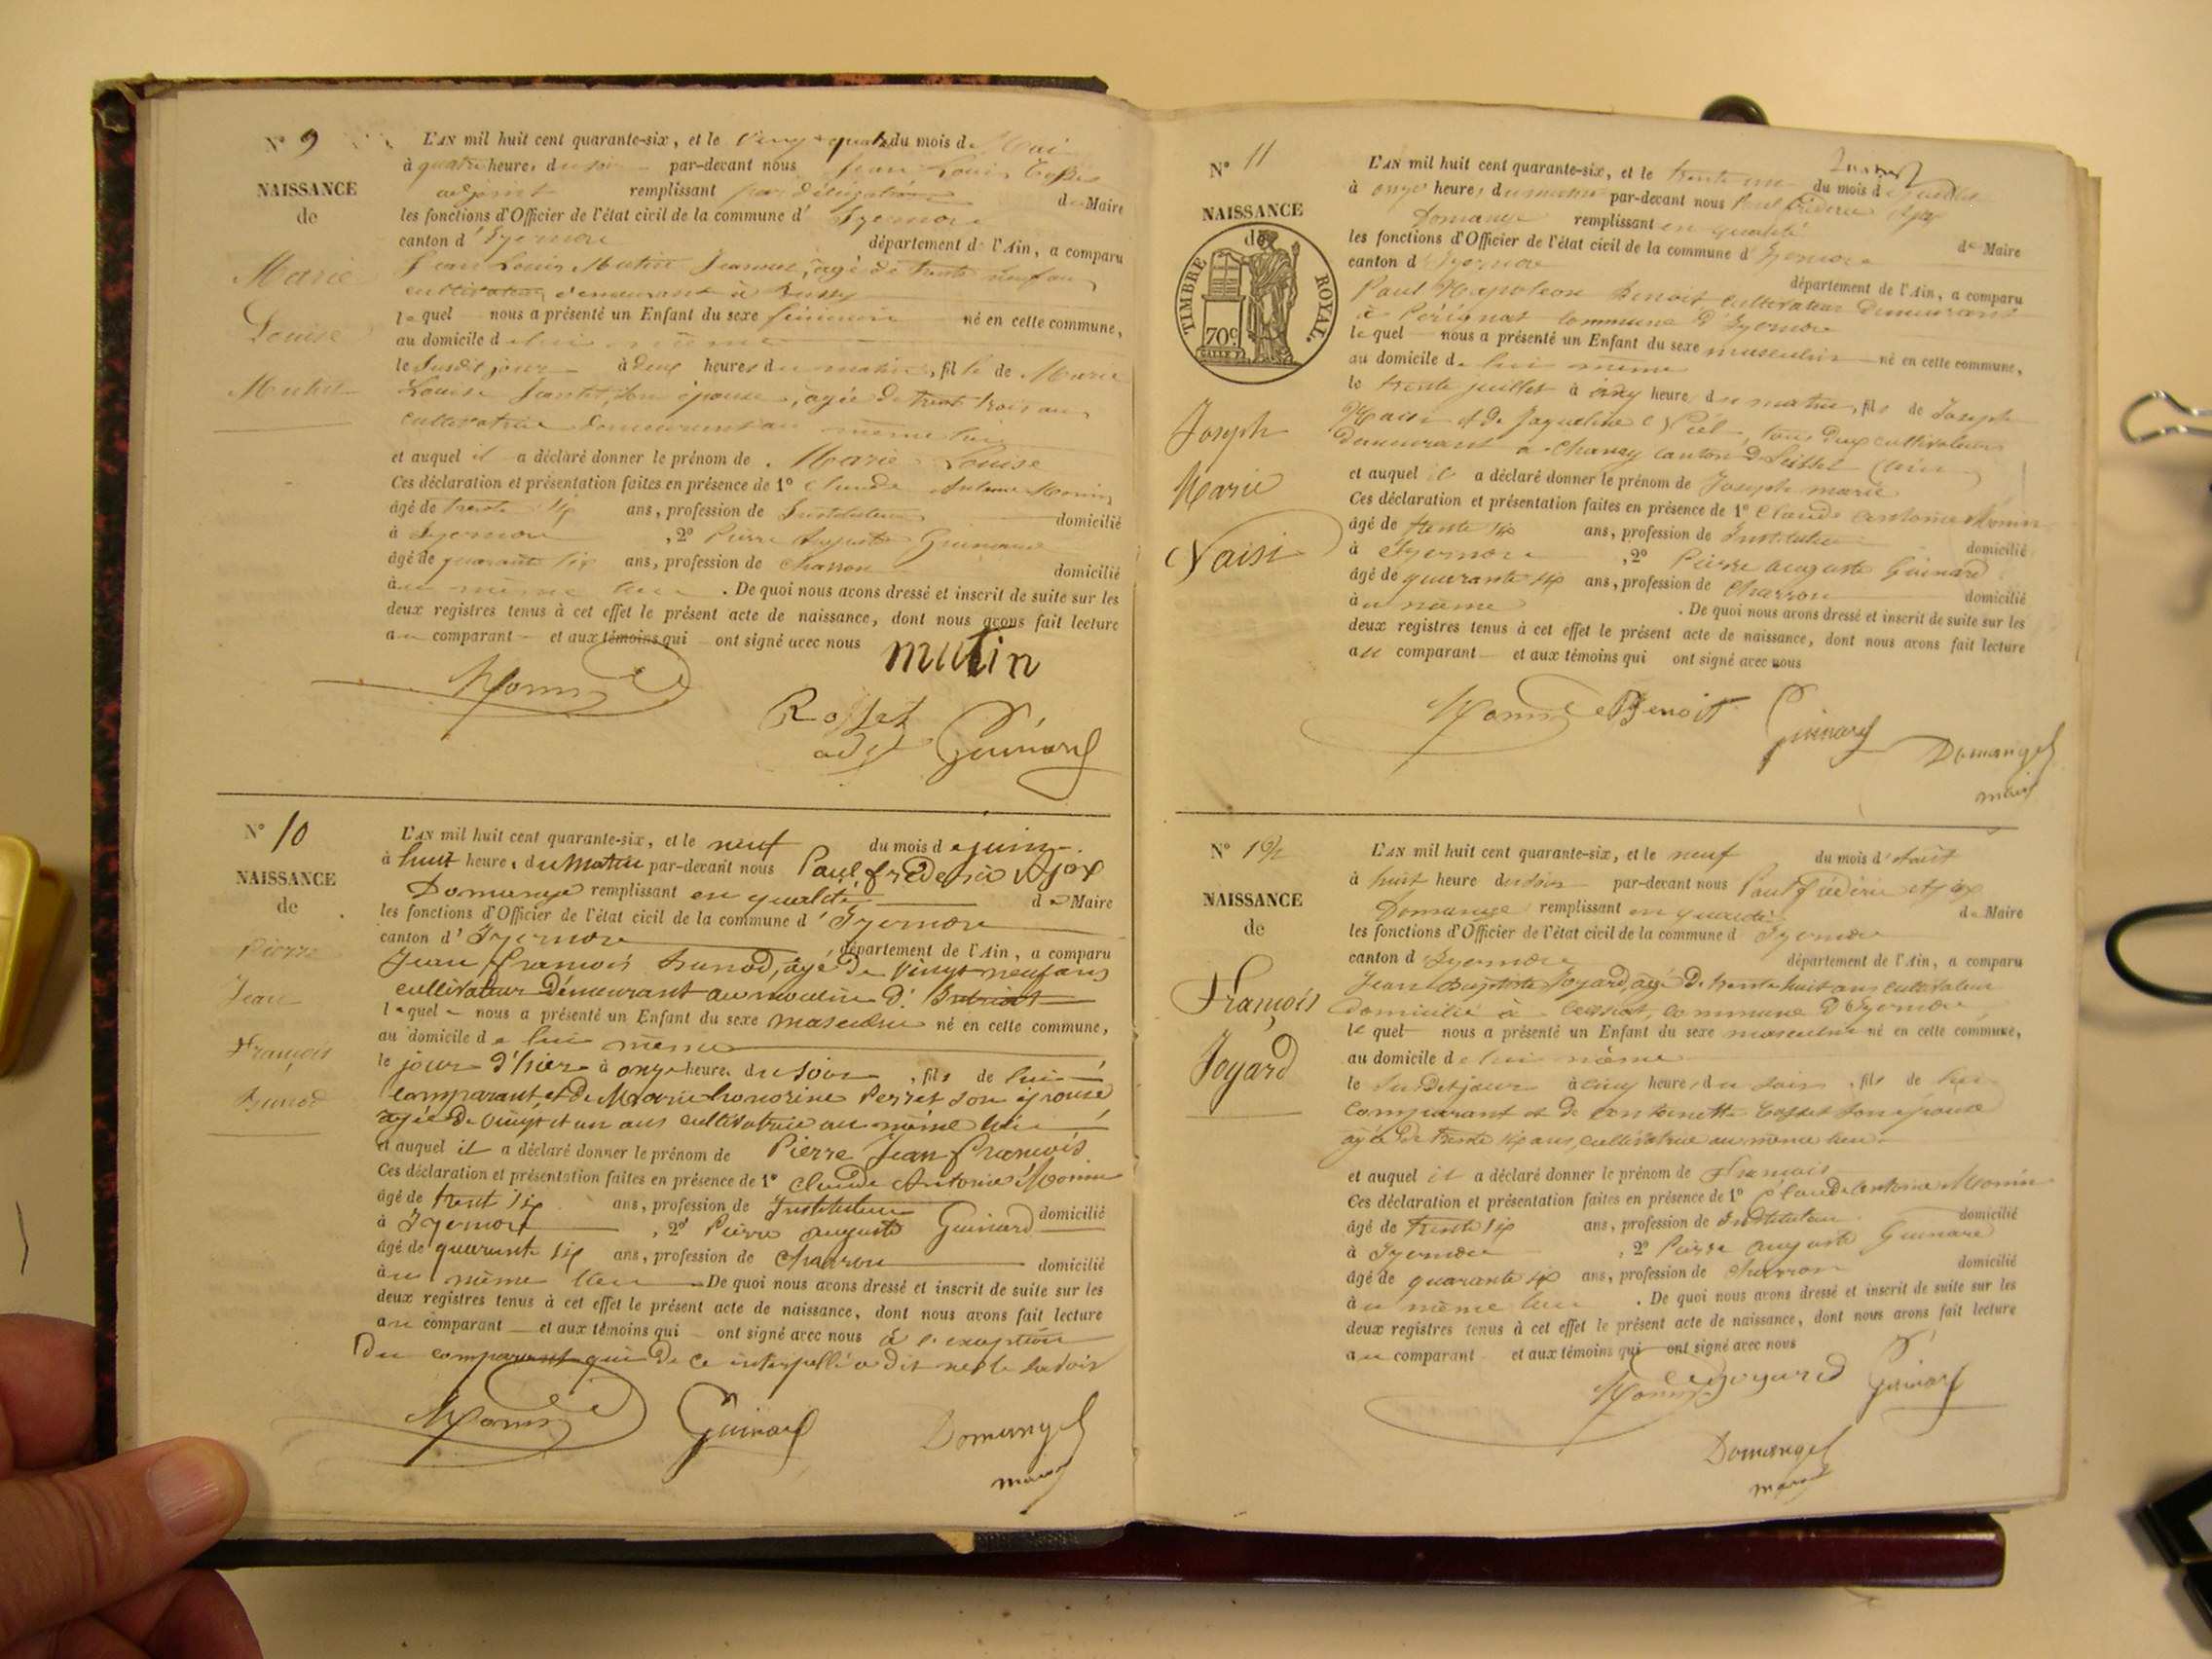 N° 9
NAISSANCE
de
Marie
Louise
Mutin
L'AN mil huit cent quarante-six, et le vingt quatre du mois de Mai
à quatre heures du soir par-devant nous Jean Louis
adjoint remplissant par délégation de Maire
les fonctions d'Officier de l'état civil de la commune d'Izernore
canton d'Izernore département de l'Ain, a comparu
Jean Louis Mutin Jeannet, âgé de trente neuf ans
cultivateur, demeurant à
lequel nous a présenté un Enfant du sexe féminin né en cette commune,
au domicile de lui même
le susdit jour à deux heures du matin, fille de Marie
Louise son épouse, âgée de trente trois ans
cultivatrice demeurant au même lieu
et auquel il a déclaré donner le prénom de Marie Louise
Ces déclaration et présentation faites en présence de 1° Claude Antoine Monin
âgé de trente six ans, profession de Instituteur domicilié
à Izernore, 2° Pierre Auguste Guinard
âgé de quarante six ans, profession de charron domicilié
au même lieu. De quoi nous avons dressé et inscrit de suite sur les
deux registres tenus à cet effet le présent acte de naissance, dont nous avons fait lecture
au comparant et aux témoins qui ont signé avec nous
mutin
Monin
Rosset
adj
Guinard
N° 10
NAISSANCE
de
Pierre
Jean
François
Hunod
L'AN mil huit cent quarante-six, et le neuf du mois de juin
à huit heures du matin par-devant nous Paul frédéric Ajax
Domange remplissant en qualité de Maire
les fonctions d'Officier de l'état civil de la commune d'Izernore
canton d'Izernore, département de l'Ain, a comparu
Jean françois hunod, âgé de vingt neuf ans
cultivateur Demeurant au moulin d'
lequel nous a présenté un Enfant du sexe masculin né en cette commune,
au domicile de lui même
le jour d'hier à onze heures du soir, fils de lui
comparant, et de Marie honorine Perret son épouse
âgée de vingt et un ans cultivatrice au même lieu
et auquel il a déclaré donner le prénom de Pierre Jean françois
Ces déclaration et présentation faites en présence de 1° Claude Antoine Monin
âgé de trente six ans, profession de Instituteur domicilié
à Izernore, 2° Pierre auguste Guinard
âgé de quarante six ans, profession de charron domicilié
au même lieu. De quoi nous avons dressé et inscrit de suite sur les
deux registres tenus à cet effet le présent acte de naissance, dont nous avons fait lecture
au comparant et aux témoins qui ont signé avec nous à l'exception
Du comparant qui de ce interpellé a dit ne le savoir
Monin
Guinard
Domange
maire
N° 11
NAISSANCE
de
TIMBRE ROYAL
70c
Joseph
Marie
Naisi
L'AN mil huit cent quarante-six, et le trente un du mois de juillet
à onze heures du matin par-devant nous Paul frédéric Ajax
Domange remplissant en qualité de Maire
les fonctions d'Officier de l'état civil de la commune d'Izernore
canton d'Izernore département de l'Ain, a comparu
Paul Napoléon Benoit cultivateur Demeurant
à Pérignat commune d'Izernore
lequel nous a présenté un Enfant du sexe masculin né en cette commune,
au domicile de lui même
le trente juillet à cinq heure du matin, fils de Joseph
Naisi et de Jaqueline tous deux cultivateurs
Demeurant à Chanay canton de Seissel (ain)
et auquel il a déclaré donner le prénom de Joseph marie
Ces déclaration et présentation faites en présence de 1° Claude antoine Monin
âgé de trente six ans, profession de Instituteur domicilié
à Izernore, 2° Pierre auguste Guinard
âgé de quarante six ans, profession de charron domicilié
au même. De quoi nous avons dressé et inscrit de suite sur les
deux registres tenus à cet effet le présent acte de naissance, dont nous avons fait lecture
au comparant et aux témoins qui ont signé avec nous
Monin
Benoit
Guinard
Domange
maire
N° 12
NAISSANCE
de
François
Joyard
L'AN mil huit cent quarante-six, et le neuf du mois d'Août
à huit heure du soir par-devant nous Paul frédéric Ajax
Domange remplissant en qualité de Maire
les fonctions d'Officier de l'état civil de la commune d Izernore
canton d Izernore département de l'Ain, a comparu
Jean Baptiste Joyard, âgé de trente huit ans cultivateur
domicilié à Ceissiat, commune d'Izernore
lequel nous a présenté un Enfant du sexe masculin né en cette commune,
au domicile de lui même
le susdit jour à cinq heures du soir, fils de lui
comparant et de antoinette son épouse
âgée de trente six ans, cultivatrice au même lieu
et auquel il a déclaré donner le prénom de François
Ces déclaration et présentation faites en présence de 1° Claude antoine Monin
âgé de trente six ans, profession de Instituteur domicilié
à Izernore, 2° Pierre auguste Guinard
âgé de quarante six ans, profession de charron domicilié
au même lieu. De quoi nous avons dressé et inscrit de suite sur les
deux registres tenus à cet effet le présent acte de naissance, dont nous avons fait lecture
au comparant et aux témoins qui ont signé avec nous
Monin
Joyard
Guinard
Domange
maire